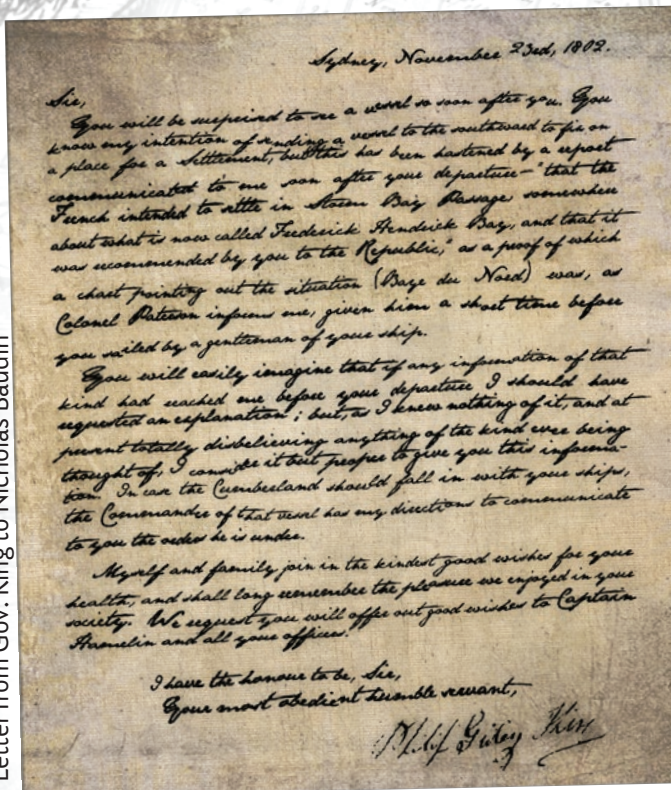 Sydney, November 23rd, 1802.
Sir,
You will be surprised to see a vessel so soon after you. You
know my intention of sending a vessel to the southward to fix on
a place for a Settlement, but this has been hastened by a report
communicated to me soon after your departure—"that the
French intended to settle in Storm Bay Passage somewhere
about what is now called Frederick Hendrick Bay, and that it
was recommended by you to the Republic," as a proof of which
a chart pointing out the situation (Baye du Nord) was, as
Colonel Paterson informs me, given him a short time before
you sailed by a gentleman of your ship.
You will easily imagine that if any information of that
kind had reached me before your departure I should have
requested an explanation; but, as I knew nothing of it, and at
present totally disbelieving anything of the kind ever being
thought of, I consider it but proper to give you this informa-
tion. In case the Cumberland should fall in with your ships,
the Commander of that vessel has my directions to communicate
to you the orders he is under.
Myself and family join in the kindest good wishes for your
health, and shall long remember the pleasure we enjoyed in your
society. We request you will offer out good wishes to Captain
Hamelin and all your officers.
I have the honour to be, Sir,
Your most obedient humble servant,
Philip Gidley King
Letter from Gov. King to Nicholas Baudin